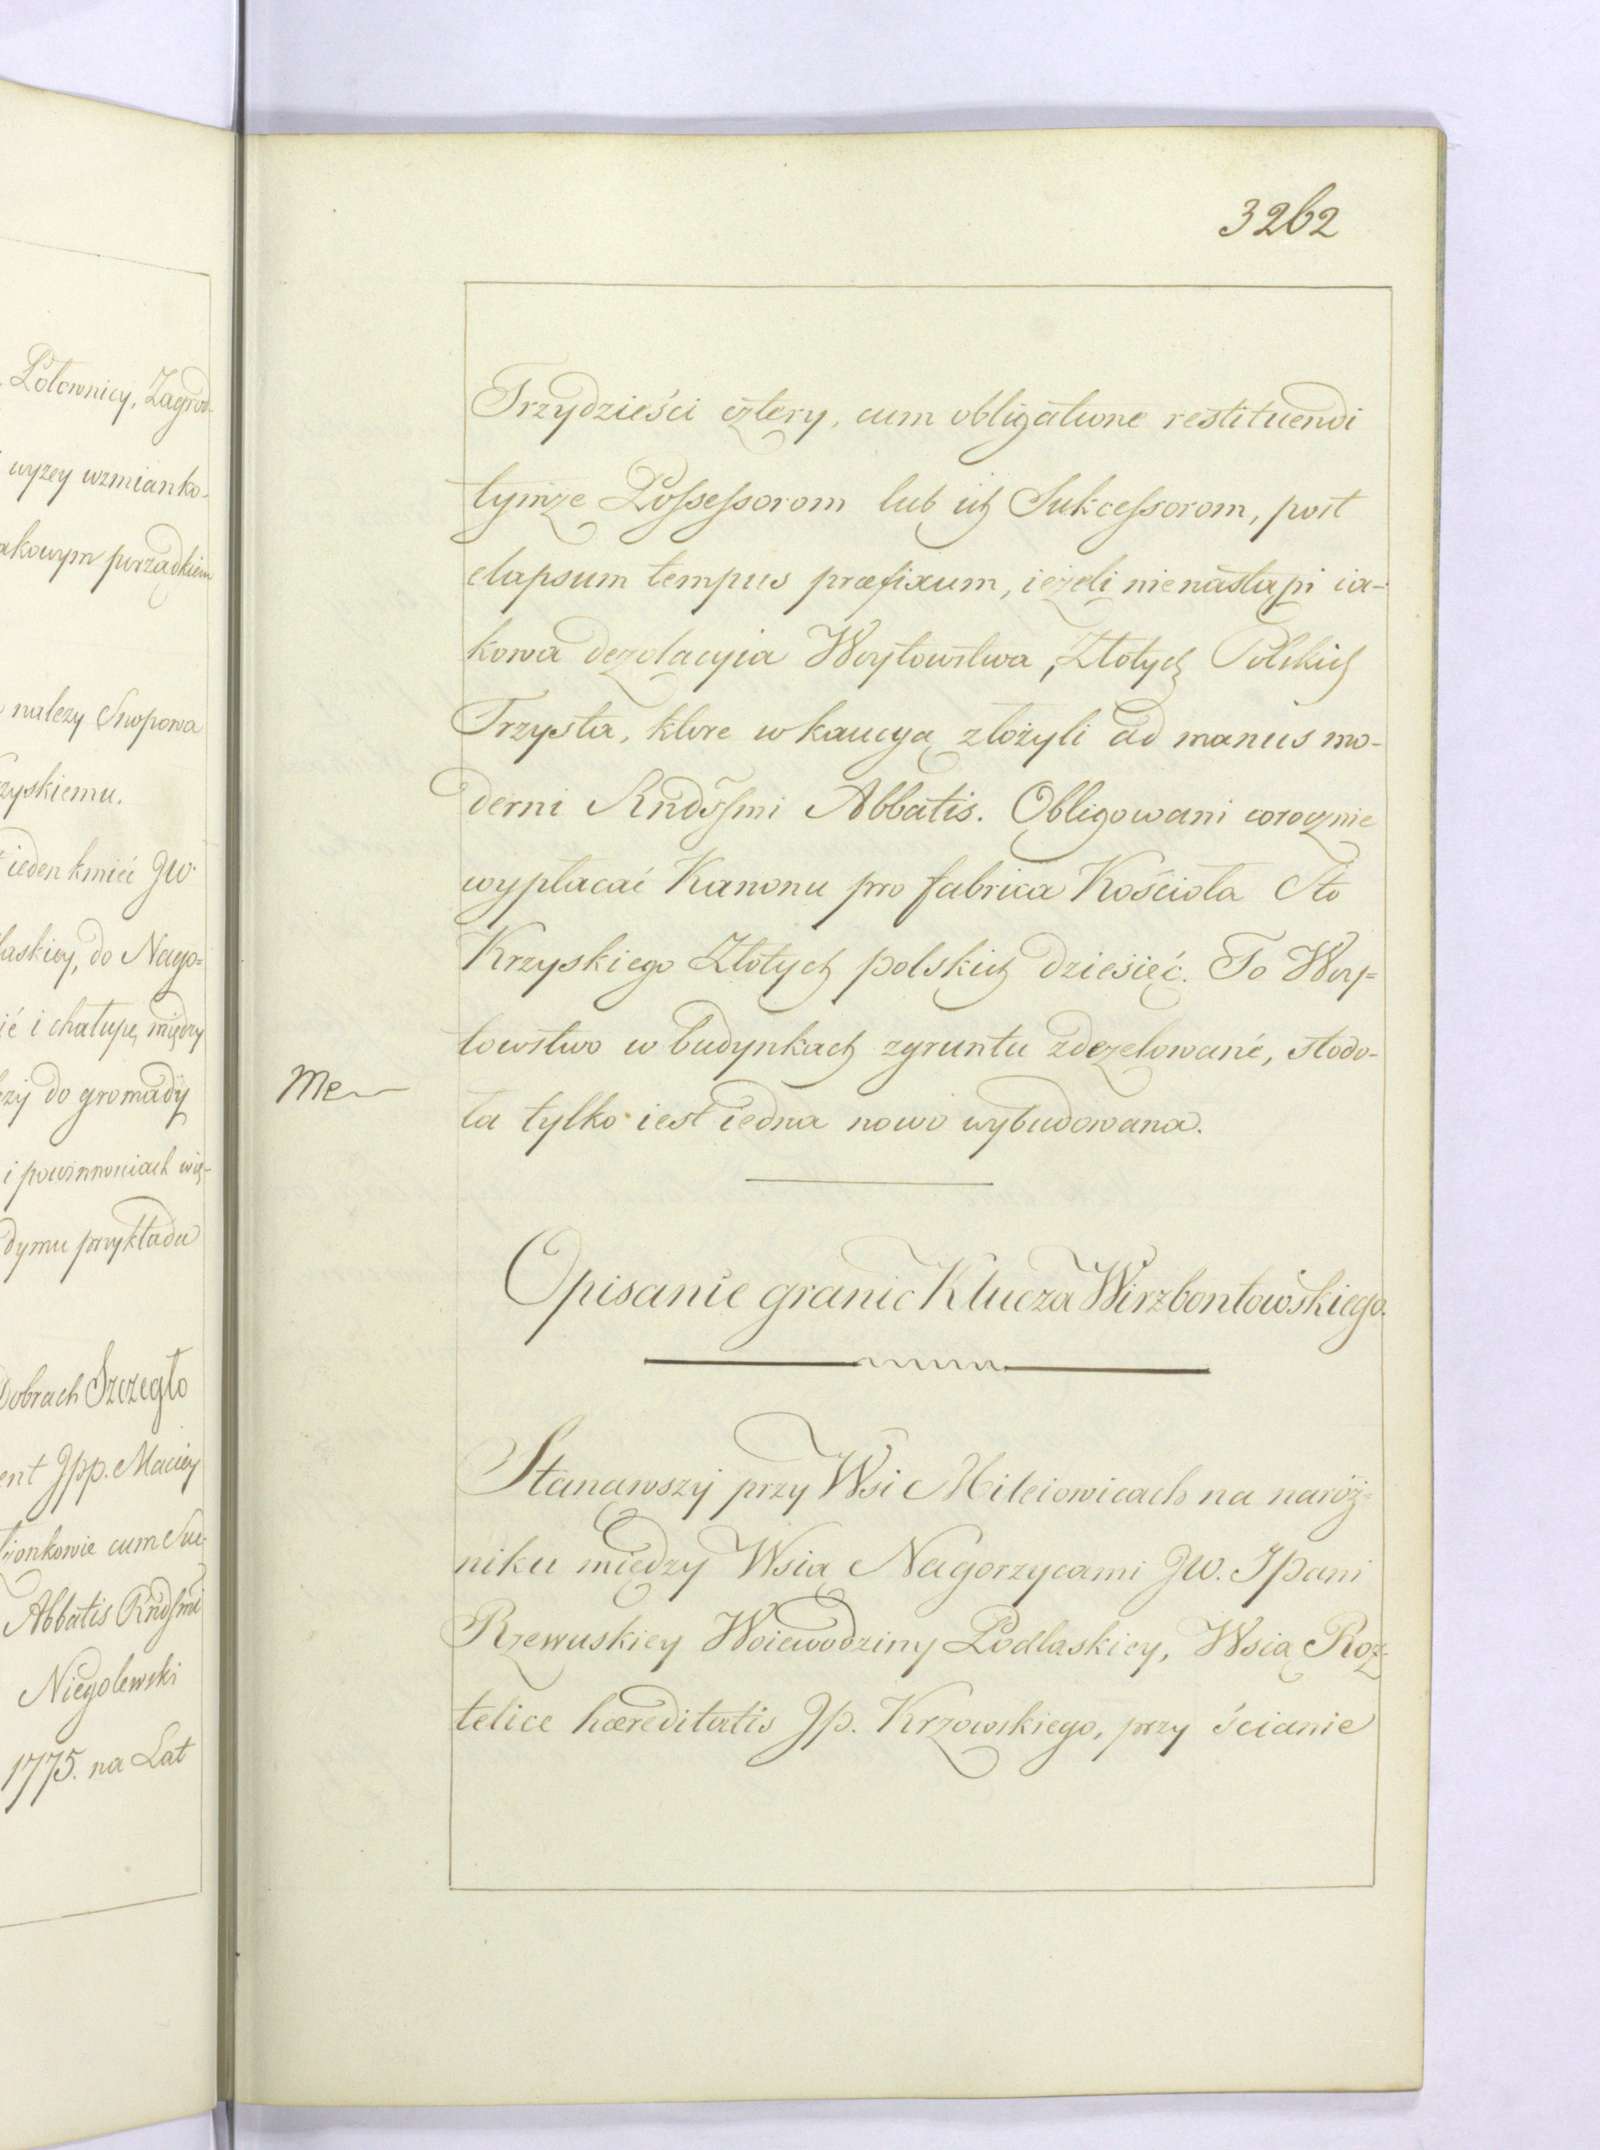 Połownicy, Zagrod-
wyzey wzmianko-
akowym porządkiem
należy Snopowa
zyskiemu.
ieden kmieć JW.
laskiey, do Nago=
ić i chałupę, między
do gromady
i powinnościach
dymu przykładu
Dobrach Szczegło
ent Jpp. Maciey
cum Suc-
Abbatis Rndssmi
Niegolewski
1775. na Lat
3262
Trzydzieści cztery, cum obligatione restituendi
tymże Possessorom lub ich Sukcessorom, post
elapsum tempus præfixum, ieżeli nienastąpi ia-
kowa dezolacyia Woytowstwa, Złotych Polskich
Trzysta, ktore w kaucyą złożyli ad manus mo-
derni Rndssmi Abbatis. Obligowani corocznie
wypłacać Kanonu pro fabrica Kościoła Sto
Krzyskiego Złotych polskich dziesięć. To Woy=
towstwo w budynkach zgruntu zdezelowane, stodo-
ła tylko iest iedna nowo wybudowana.
Me
Opisanie granic Klucza Wirzbontowskiego.
Stanawszy przy Wsi Mileiowicach na naróż=
niku między Wsią Nagorzycami JW. Jpani
Rzewuskiey Woiewodziny Podlaskiey, Wsią Roz-
telice hæreditatis Jp. Krzowskiego, przy ścianie